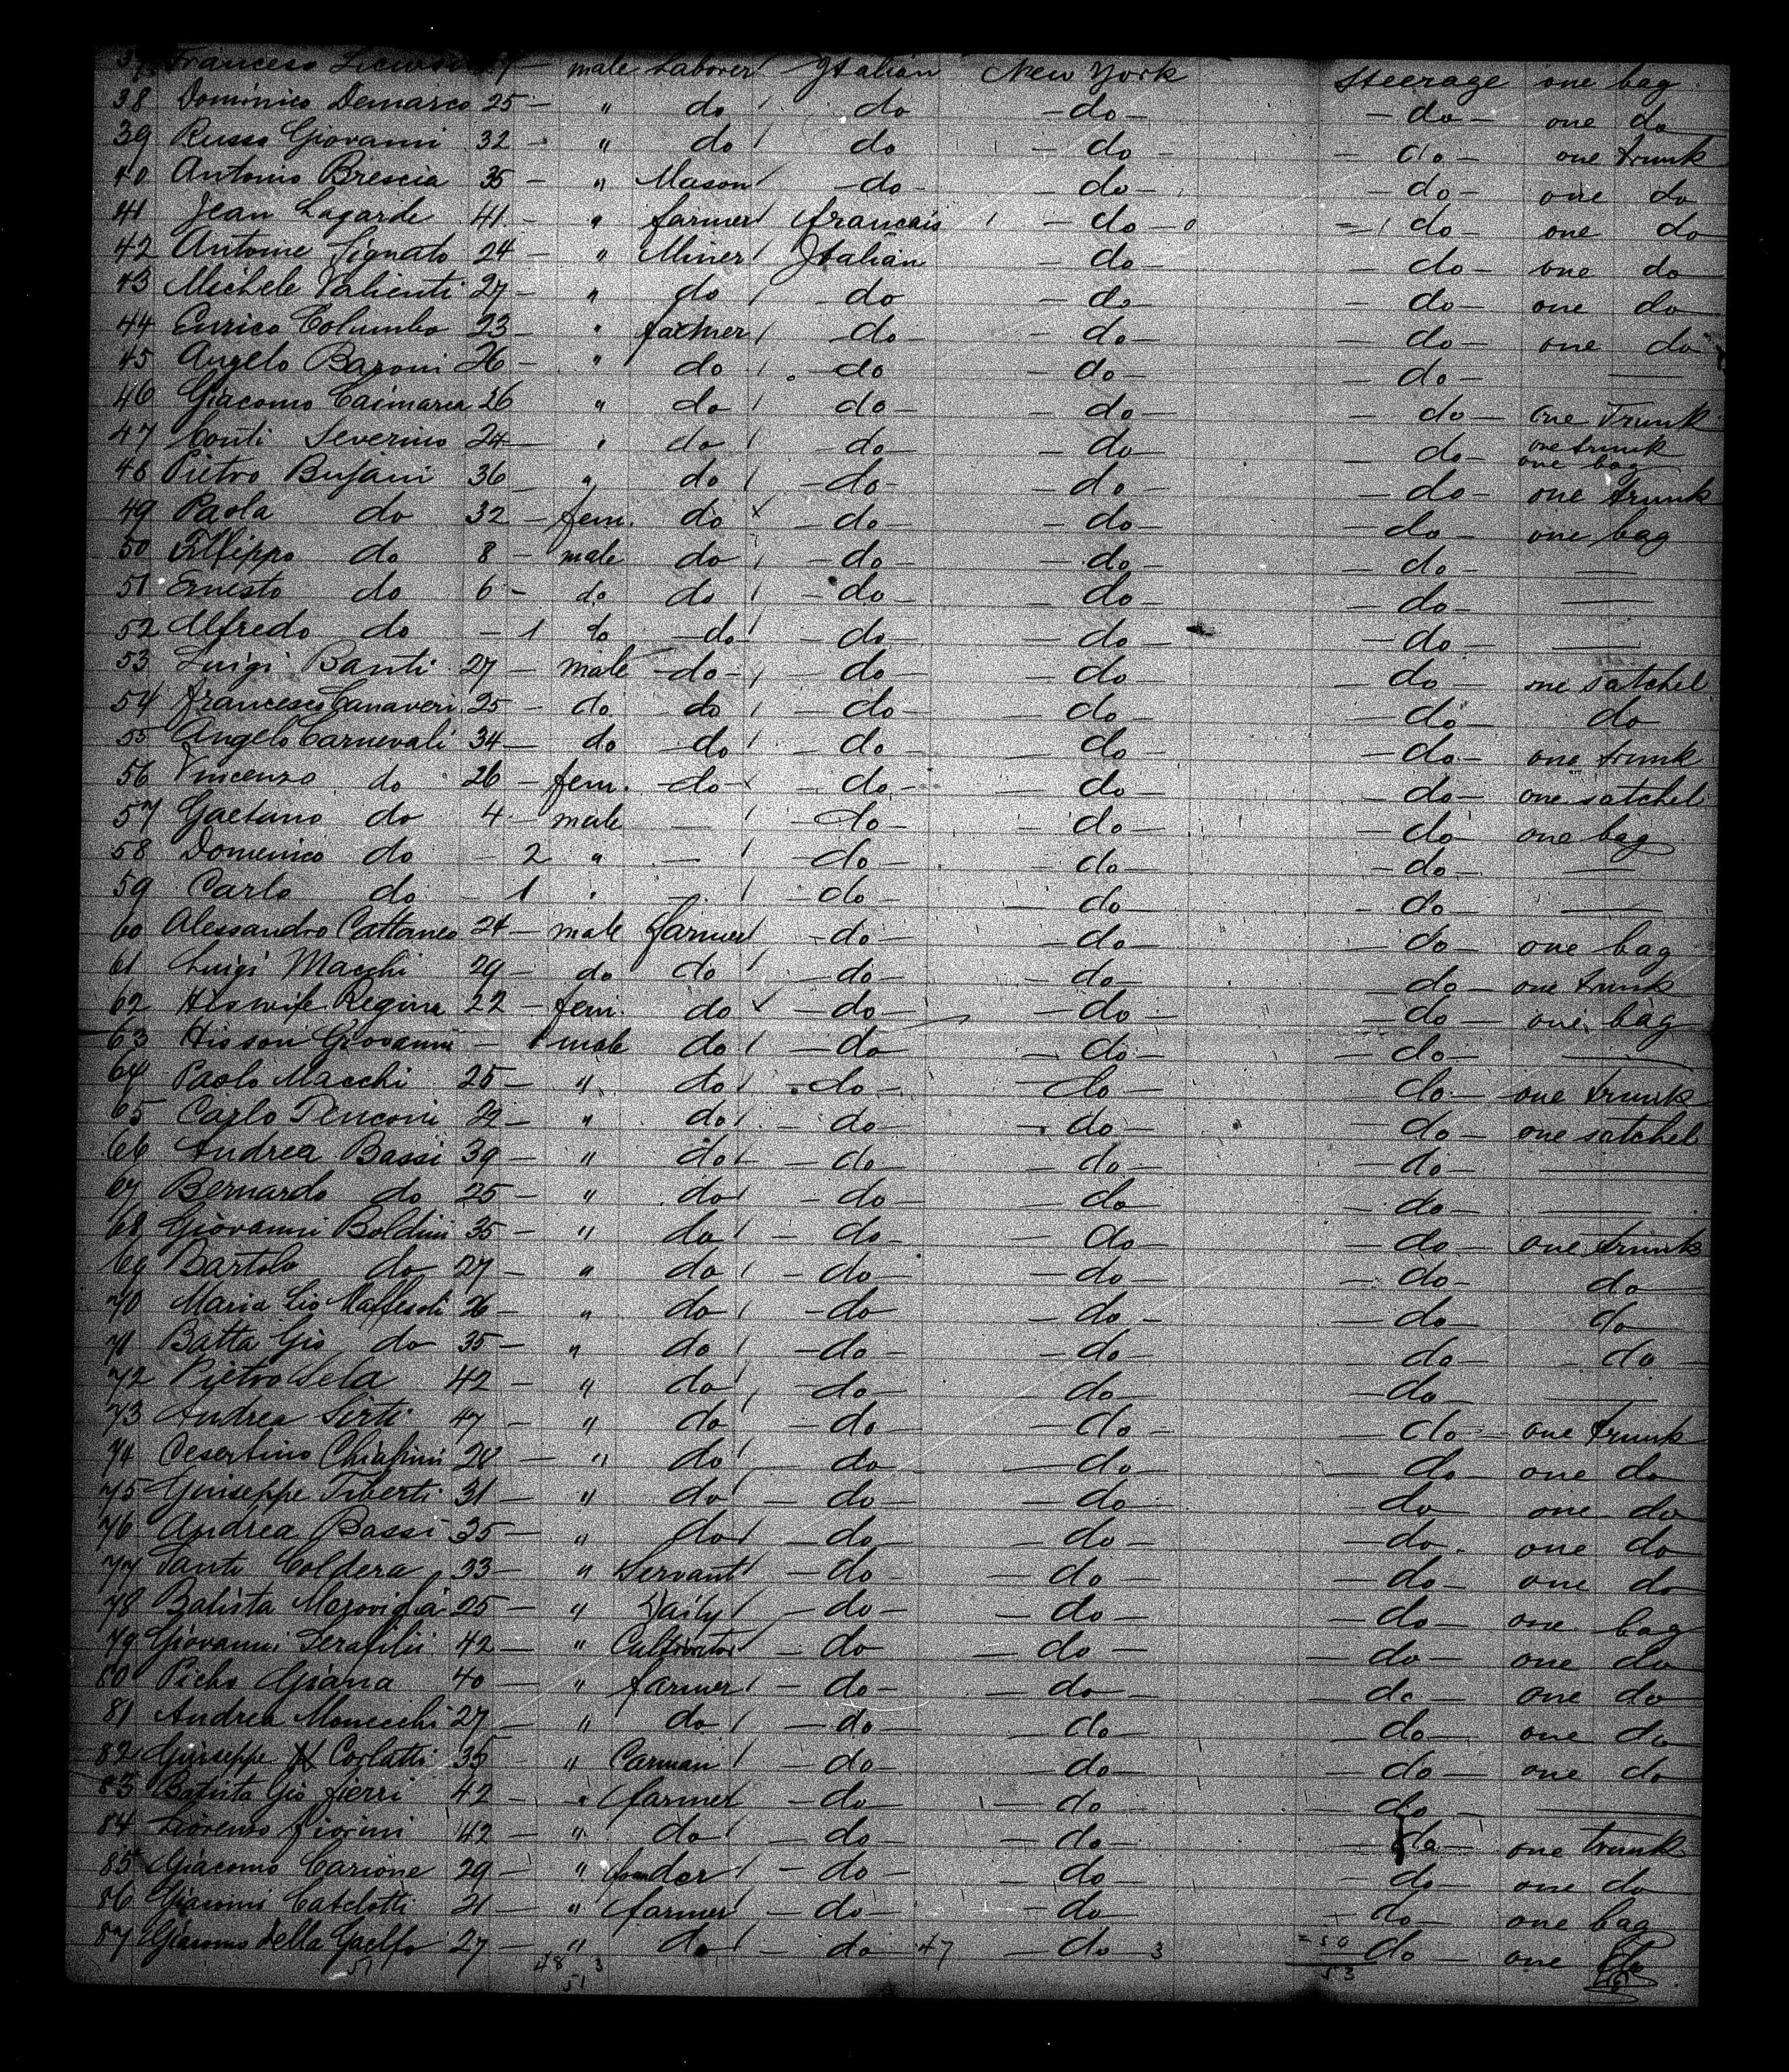 37 Francesco male Laborer Italian New York Steerage one bag
38 Dominico Demarco 25 - " do do - do - - do - one do
39 Russo Giovanni 32 - " do do - do - - do - one trunk
40 Antonio Brescia 35 - " Mason - do - - do - - do - one do
41 Jean Lagarde 41 - " farmer francais - do - - do - one do
42 Antonie Signato 24 - " Miner Italian - do - - do - one do
43 Michele Valienti 27 - " do - do - do - - do - one do
44 Enrico Columbo 23 - " farmer - do - - do - - do - one do
45 Angelo Baroni 26 - " do - do - do - - do - —
46 Giacomo Caimarca 26 " do do - - do - - do - one Trunk
47 Conti Severino 24 - " do - do - - do - do - one trunk one bag
48 Pietro Bufani 36 - " do - do - - do - - do - one trunk
49 Paola do 32 - fem. do x - do - - do - - do - one bag
50 Filippo do 8 - male do - do - - do - - do - —
51 Ernesto do 6 - do do - do - - do - - do - —
52 Alfredo do - 1 do - do - - do - - do - - do - —
53 Luigi Banti 27 - male - do - - do - - do - - do - one satchel
54 Francesco Canaveri 25 - do do - do - - do - - do - do
55 Angelo Carnevali 34 - do - do - do - - do - - do - one trunk
56 Vincenzo do 26 - fem. - do - x - do - - do - - do - one satchel
57 Gaetano do 4 - male — - do - - do - - do - one bag
58 Domenico do - 2 " — - do - - do - - do - —
59 Carlo do - 1 " — - do - - do - - do - —
60 Alessandro Cattaneo 24 - male farmer - do - - do - - do - one bag
61 Luigi Macchi 29 - do do - do - - do - - do - one trunk
62 His wife Regina 22 - fem. do - do - - do - - do - one bag
63 His son Giovanni - 1 male do - do - do - - do - —
64 Paolo Macchi 25 - " do - do - - do - do - one trunk
65 Carlo Penconi 22 - " do - do - - do - - do - one satchel
66 Andrea Bassi 39 - " do - do - - do - - do - —
67 Bernardo do 25 - " do - do - - do - - do - —
68 Giovanni Boldini 35 - " do - do - - do - - do - one trunk
69 Bartolo do 27 - " do - do - - do - - do - do
70 Maria Gio Maffesoli 26 - " do - do - do - - do - do
71 Batta Gio do 35 - " do - do - - do - - do - - do -
72 Pietro Sela 42 - " do - do - do - - do - —
73 Andrea Sirti 47 - " do - do - - do - - do - one trunk
74 Cesertino Chiafini 28 - " do - do - do - - do - one do
75 Giuseppe Tiberti 31 - " do - do - - do - - do one do
76 Andrea Bassi 35 - " do - do - - do - - do - one do
77 Santi Coldera 33 - " Servant - do - - do - - do - one do
78 Batista 25 - " Daily - do - - do - - do - one bag
79 Giovanni Serafilii 42 - " Cultivator - do - do - - do - one do
80 Picho Giana 40 - " farmer - do - - do - - do - one do
81 Andrea Monecchi 27 - " do - do - - do - - do - one do
82 Giuseppe Corlatti 35 - " Carman - do - - do - - do - one do
83 Batista Gio fierri 42 - " farmer - do - - do - - do - —
84 Liorenso fiorini 42 - " do - do - - do - - do - one trunk
85 Giacomo Carione 29 - " - do - - do - - do - one do
86 Giacomi Catelotti 21 - " farmer - do - - do - do - one bag
87 Giacomo della Gaelfo 27 - " do - do 47 - do - 3 = 50 do - one do
51 48 3 53
51